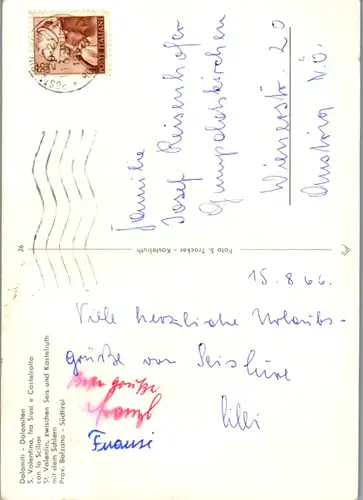 Dolomiti - Dolomiten
S. Valentino, fra Siusi e Castelrotto
con lo Sciliar
St. Valentin, zwischen Seis und Kastelruth
mit dem Schlern
Prov. Bolzano - Südtirol
15.8.66.
Viele herzliche Urlaubs-
grüße von Seis
Lilli
grüße
Franzl
Franzi
26
Foto S. Trocker - Kastelruth
POSTE ITALIANE
Familie
Josef Reisenhofer
Gumpoldskirchen
Wienerstr. 20
Austria N.Ö.